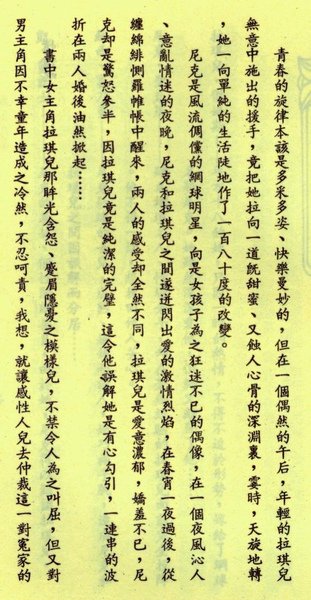 青春的旋律本該是多采多姿、快樂曼妙的，但在一個偶然的午后，年輕的拉琪兒
無意中施出的援手，竟把她拉向一道既甜蜜、又蝕人心骨的深淵裏，霎時，天旋地轉
，她一向單純的生活陡地作了一百八十度的改變。
尼克是風流倜儻的網球明星，向是女孩子為之狂迷不已的偶像，在一個夜風沁人
、意亂情迷的夜晚，尼克和拉琪兒之間遂迸閃出愛的激情烈焰，在春宵一夜過後，從
纏綿緋惻羅帷帳中醒來，兩人的感受却全然不同，拉琪兒是愛意濃郁，嬌羞不已，尼
克却是驚怒參半，因拉琪兒竟是純潔的完璧，這令他誤解她是有心勾引，一連串的波
折在兩人婚後油然掀起……
書中女主角拉琪兒那眸光含怨、蹙眉隱憂之模樣兒，不禁令人為之叫屈，但又對
男主角因不幸童年造成之冷然，不忍呵責，我想，就讓感性人兒去仲裁這一對冤家的